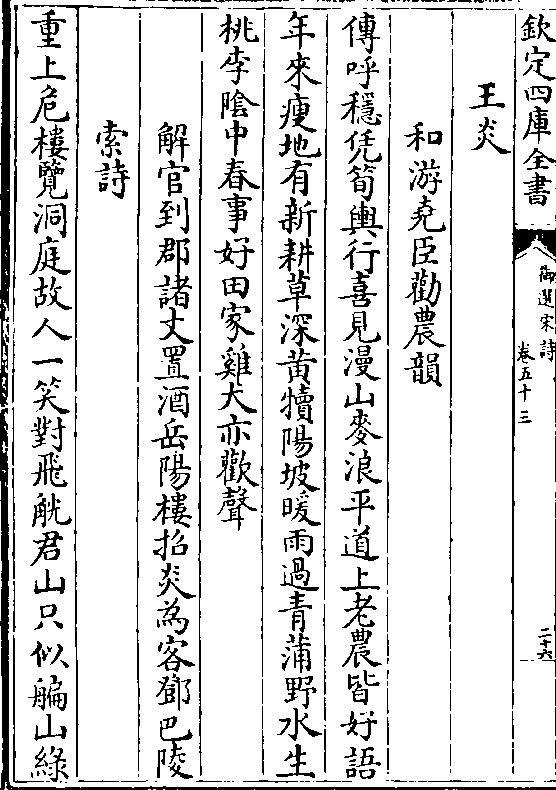 欽定四庫全書
御選宋詩
卷五十三
二十六
王炎
和游堯臣勸農韻
傳呼穩凭筍輿行喜見漫山麥浪平道上老農皆好語
年來瘦地有新耕草深黄犢陽坡暖雨過青蒲野水生
桃李陰中春事好田家雞犬亦歡聲
解官到郡諸丈置酒岳陽樓招炎為客鄧巴陵
索詩
重上危樓覽洞庭故人一笑對飛觥君山只似艑山綠